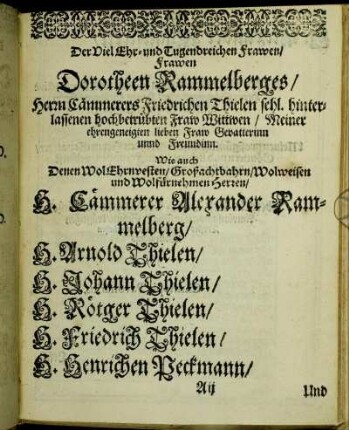 Der Viel Ehr- und Tugendreichen Frawen/
Frawen
Dorotheen Rammelberges/
Herrn Cämmerers Friedrichen Thielen sehl. hinter-
lassenen hochbetrübten Fraw Wittiven / Meiner
ehrengeneigten lieben Fraw Gevatterinn
unnd Freundinn.
Wie auch
Denen WolEhrnvesten/ Großachtbahrn/ Wolweisen
und Wolfürnehmen Herren/
H. Cämmerer Alexander Ram-
melberg/
H. Arnold Thielen/
H. Johann Thielen/
H. Rötger Thielen/
H. Friedrich Thielen/
H. Henrichen Peckmann/
Aij Und